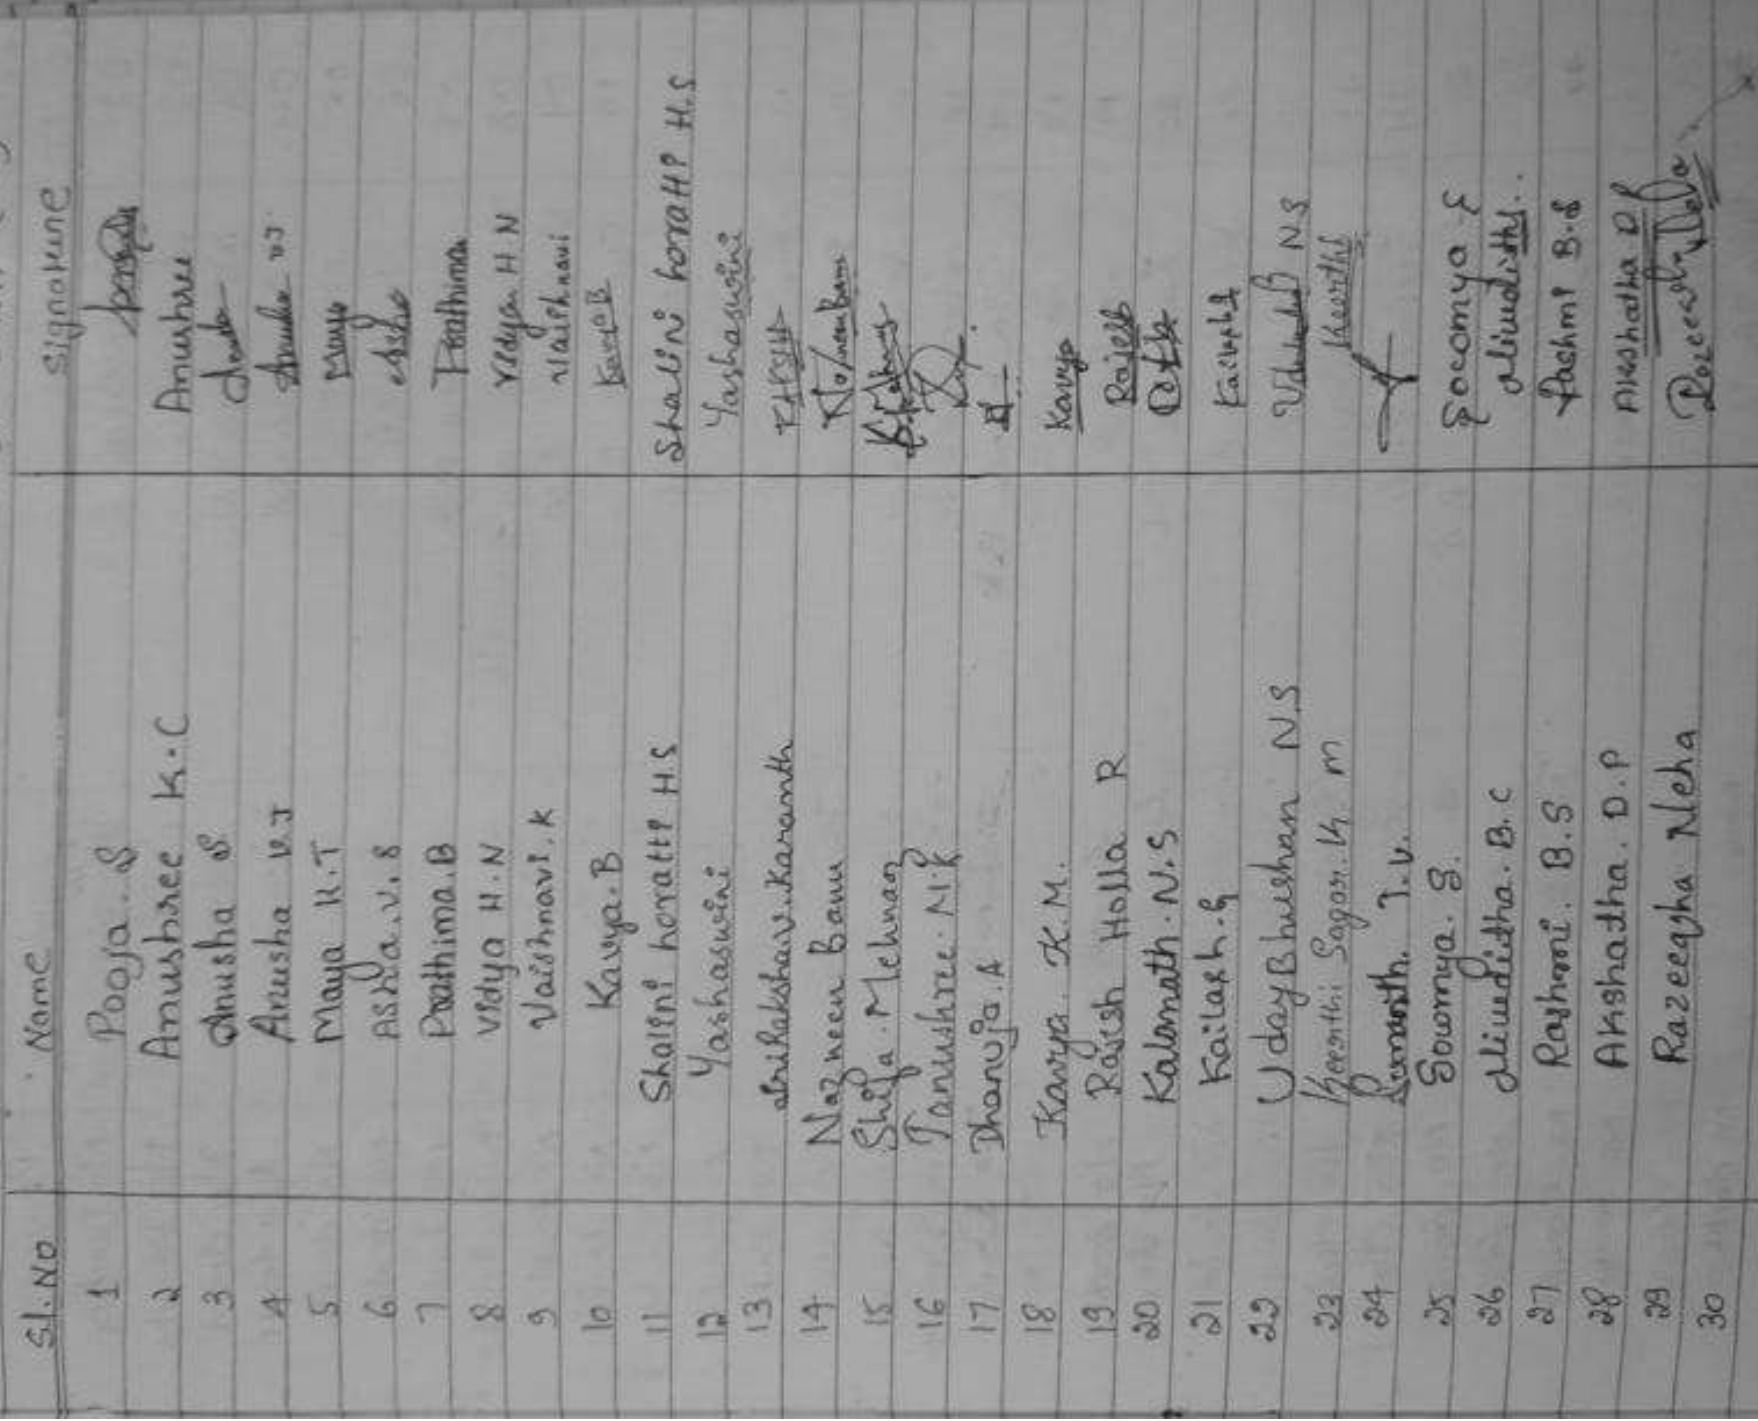 Sl.No Name Signature
1 Pooja.S
2 Anushree K.C Anushree
3 Anusha S
4 Anusha V.J Anusha V.J
5 Maya H.T Maya
6 Asha.V.S Asha
7 Prathima.B Prathima
8 Vidya H.N Vidya H N
9 Vaishnavi.K Vaishnavi
10 Kavya.B Kavya B
11 Shalini horatti H.S Shalini horatti H.S
12 Yashaswini Yashaswini
13 shriRaksha.V.Karanth
14 Nazneen Banu Nazneen Banu
15 Shifa.Mehnaz
16 Tanushree.M.P
17 Dhanuja.A
18 Kavya K.M. Kavya
19 Rajesh Holla R Rajesh
20 Kalanath.N.S
21 Kailash.G Kailash
22 UdayBhushan N.S N.S
23 Keerthi Sagar.K m Keerthi
24 Sumanth. I.V.
25 Sowmya.S. Sowmya S
26 Niveditha.B.C Niveditha..
27 Rashmi. B.S Rashmi B.S
28 Akshatha.D.P Akshatha D P
29 Razeeqha Neha Razeeqha Neha
30